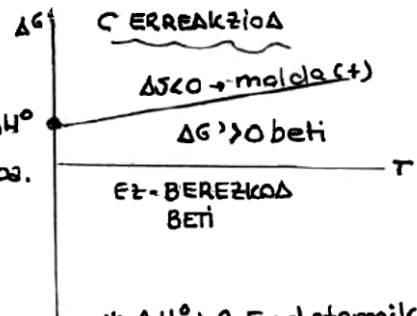 ΔG
C ERREAKZIOA
ΔS<0 → malda (+)
ΔH°
ΔG >0 beti
T
EZ-BEREZKOA
BETI